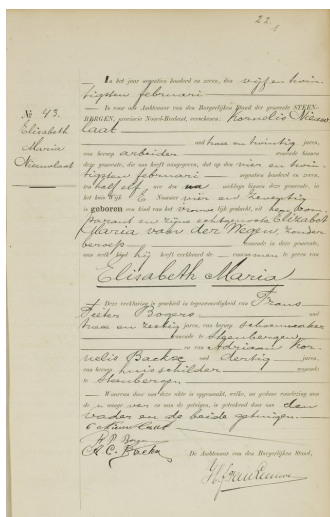 22
No 43.
Elisabeth
Maria
Nieuwlaat
In het jaar negentien honderd en zeven, den vijf en twin-
tigsten februari
is voor ons Ambtenaar van den Burgerlijken Stand der gemeente STEEN-
BERGEN, provincie Noord-Brabant, verschenen: Kornelis Nieuw
laat
oud twee en twintig jaren,
van beroep arbeider wonende binnen
deze gemeente, die ons heeft aangegeven, dat op den vier en twin-
tigsten februari negentien honderd en zeven,
ten half elf ure des na middags binnen deze gemeente, in
het huis Wijk E Nummer vier en zeventig
is geboren een kind van het vrouwelijk geslacht, uit hem com-
parant en zijne echtgenoote Elizabeth
Maria van der Wegen, zonder
beroep wonende in deze gemeente,
aan welk kind hij heeft verklaard de voornamen te geven van
Elisabeth Maria
Deze verklaring is geschied in tegenwoordigheid van Frans
Pieter Bogers oud
twee en zestig jaren, van beroep schoenmaker
wonende te Steenbergen
en van Adriaan Kor-
nelis Backx oud dertig jaren,
van beroep huisschilder wonende
te Steenbergen
Waarvan door ons deze akte is opgemaakt, welke, na gedane voorlezing aan
den vader en de beide getuigen.
C Nieuwlaat
A C. Backx
De Ambtenaar van den Burgerlijken Stand,